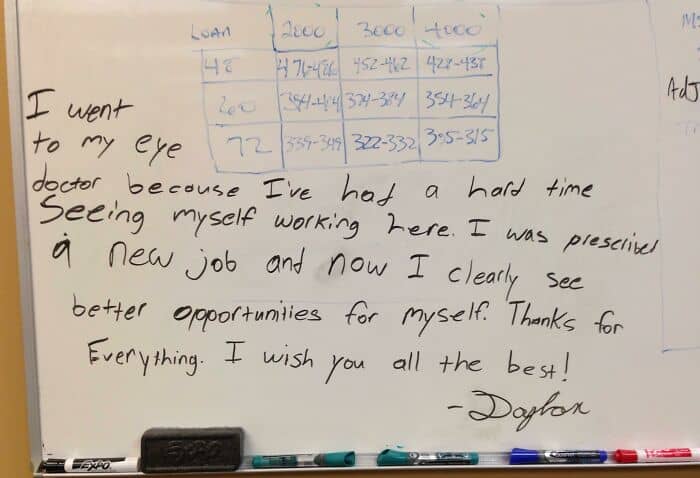 LOAN 2000 3000 4000
48 476-486 452-462 428-438
60 374-384 354-364
72 339-349 322-332 305-315
I went
to my eye
doctor because I've had a hard time
Seeing myself working here. I was prescribed
a new job and now I clearly see
better opportunities for myself. Thanks for
Everything. I wish you all the best!
Adj
EXPO
EXPO